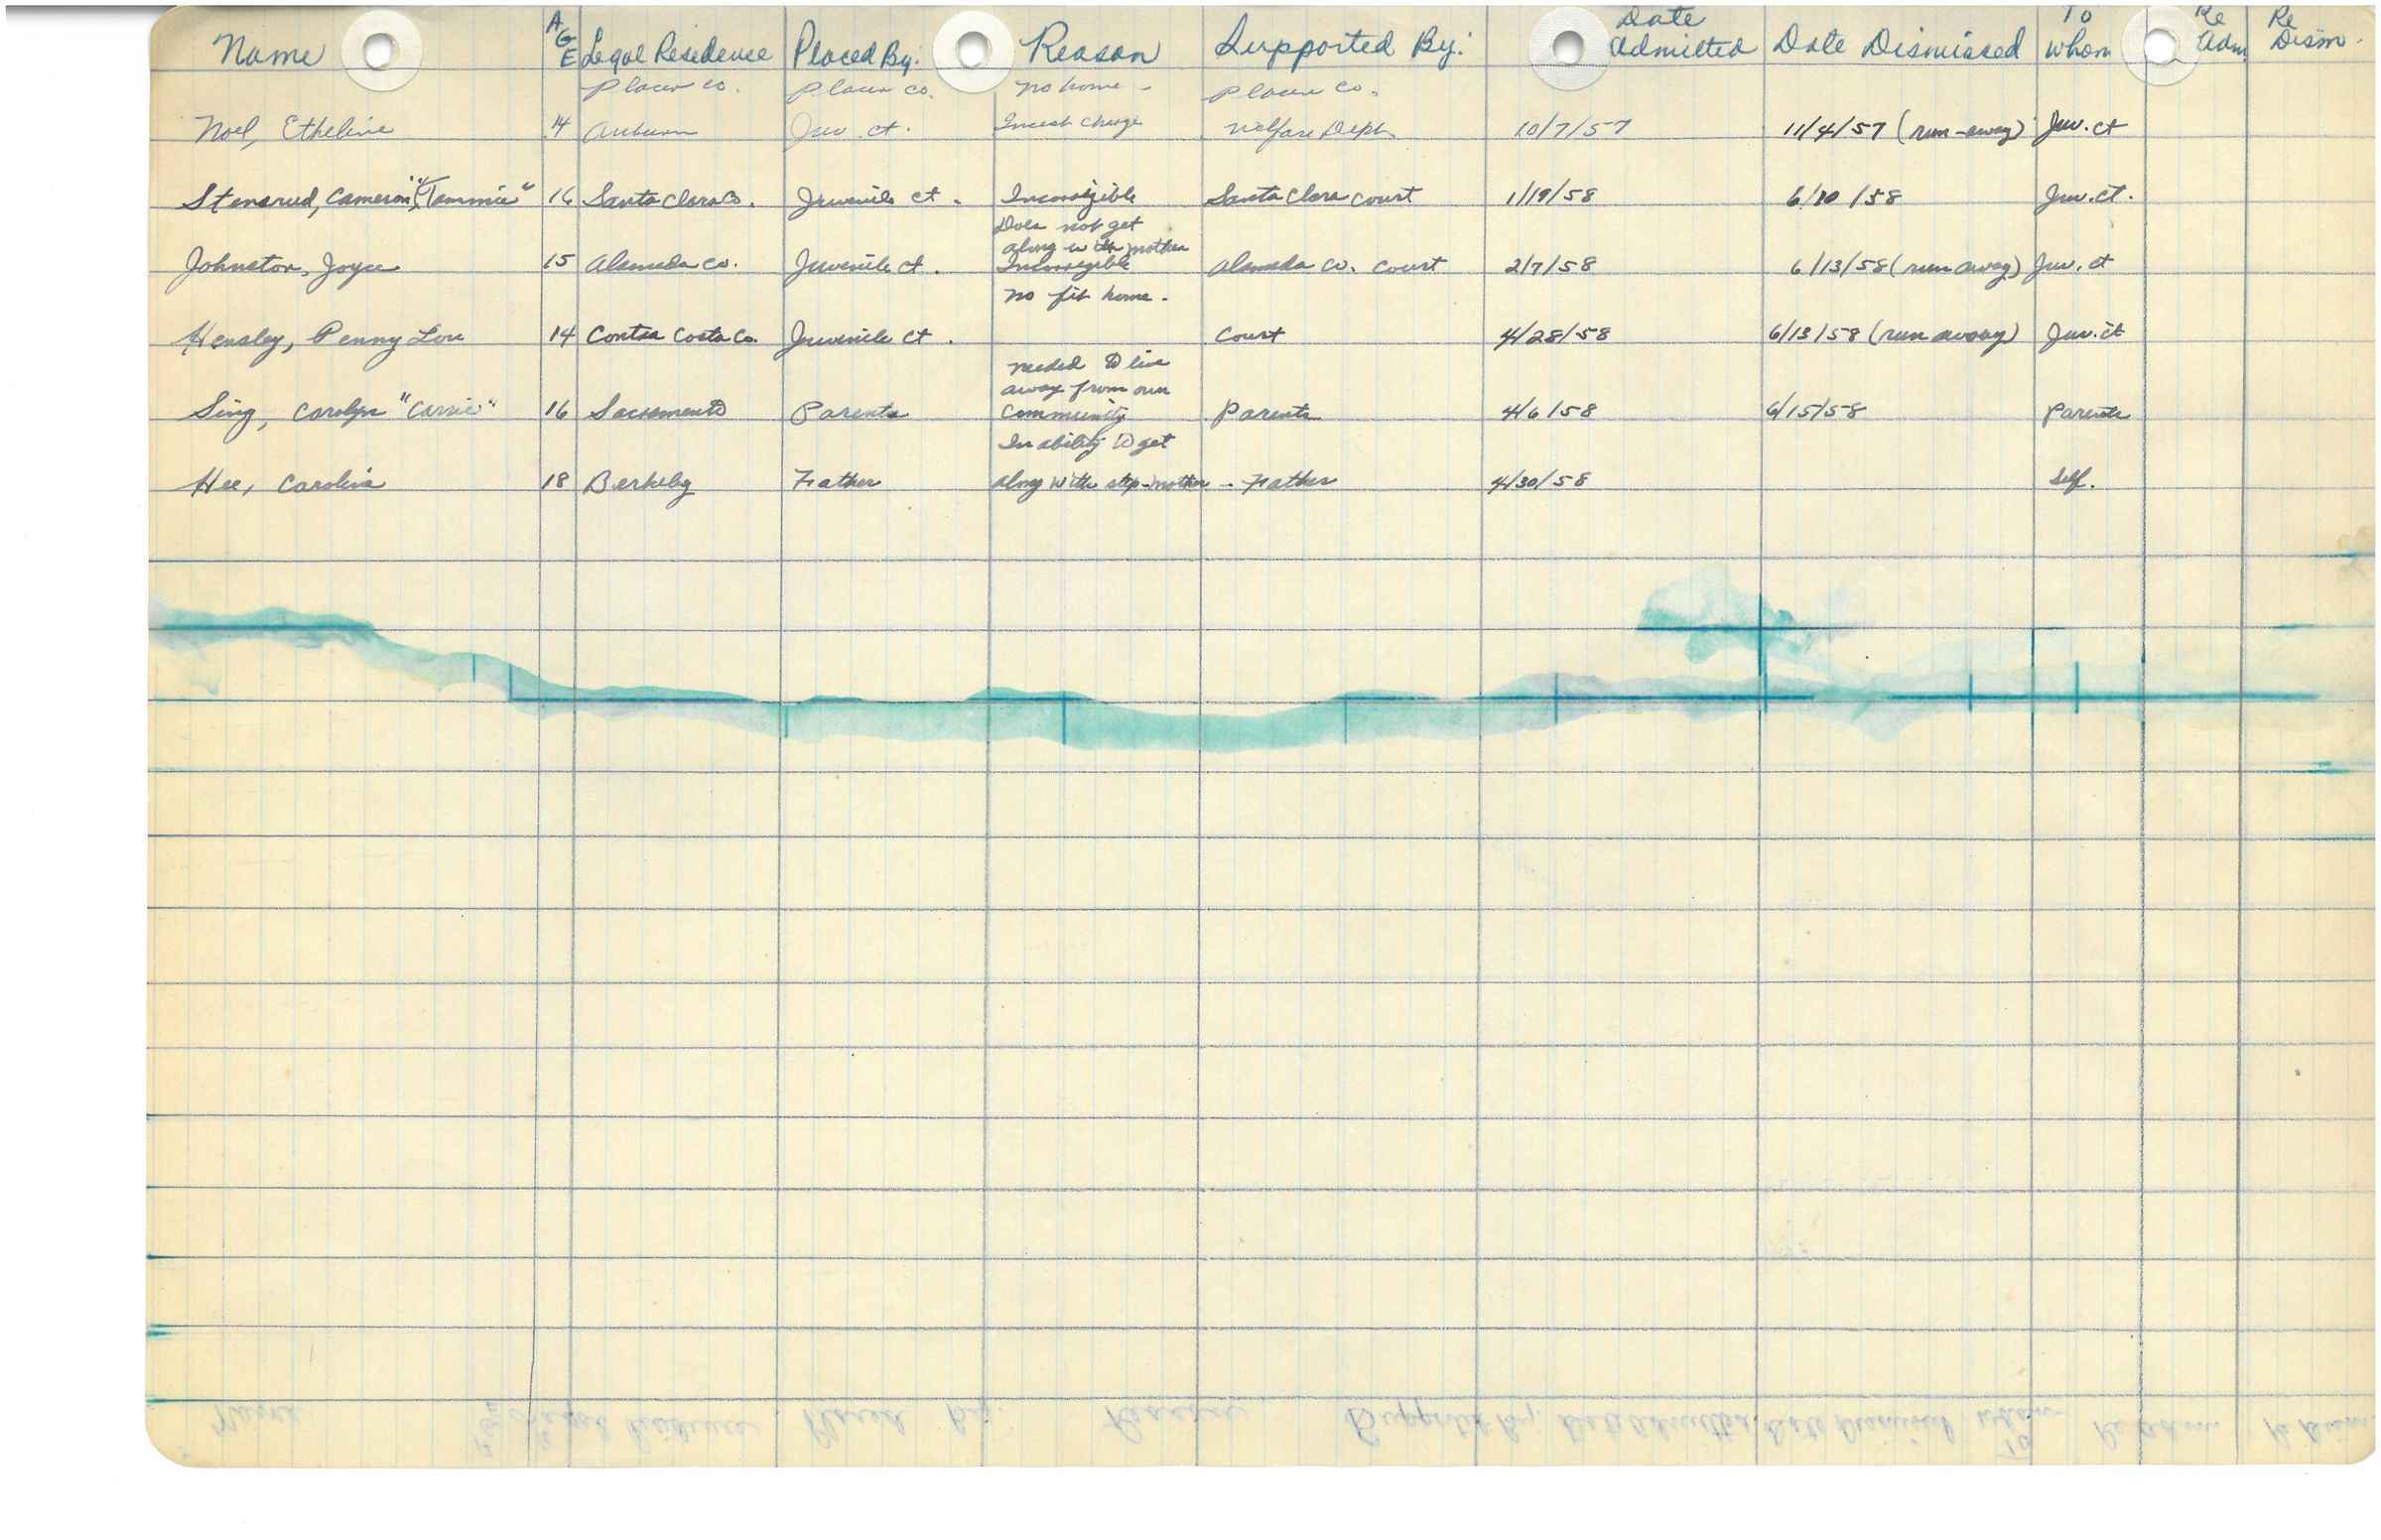 Name AGE Legal Residence Placed By: Reason Supported By: Date Admitted Date Dismissed To Whom Re Adm. Re Dism.
Placer Co. Placer Co. No home - Placer Co.
Noel, Etheline 14 Auburn Juv. ct. Incest charge Welfare Dept. 10/7/57 11/4/57 (run-away) Juv. ct
Stensrud, Cameron "Tammie" 16 Santa Clara Co. Juvenile ct. Incorrigible Santa Clara Court 1/19/58 6/10/58 Juv. ct.
Does not get
along with mother
Johnston, Joyce 15 Alameda Co. Juvenile ct. Incorrigible Alameda Co. Court 2/7/58 6/13/58 (run away) Juv. ct
No fit home.
Hensley, Penny Lou 14 Contra Costa Co. Juvenile ct. Court 4/28/58 6/13/58 (run away) Juv. ct
needed to live
away from own
Sing, Carolyn "Carrie" 16 Sacramento Parents Community Parents 4/6/58 6/15/58 Parents
Inability to get
Hee, Caroline 18 Berkeley Father along with step-mother - Father 4/30/58 Self.
Name Age Legal Residence Placed By: Reason Supported By: Date Admitted Date Dismissed To Whom Re Adm. Re Dism.